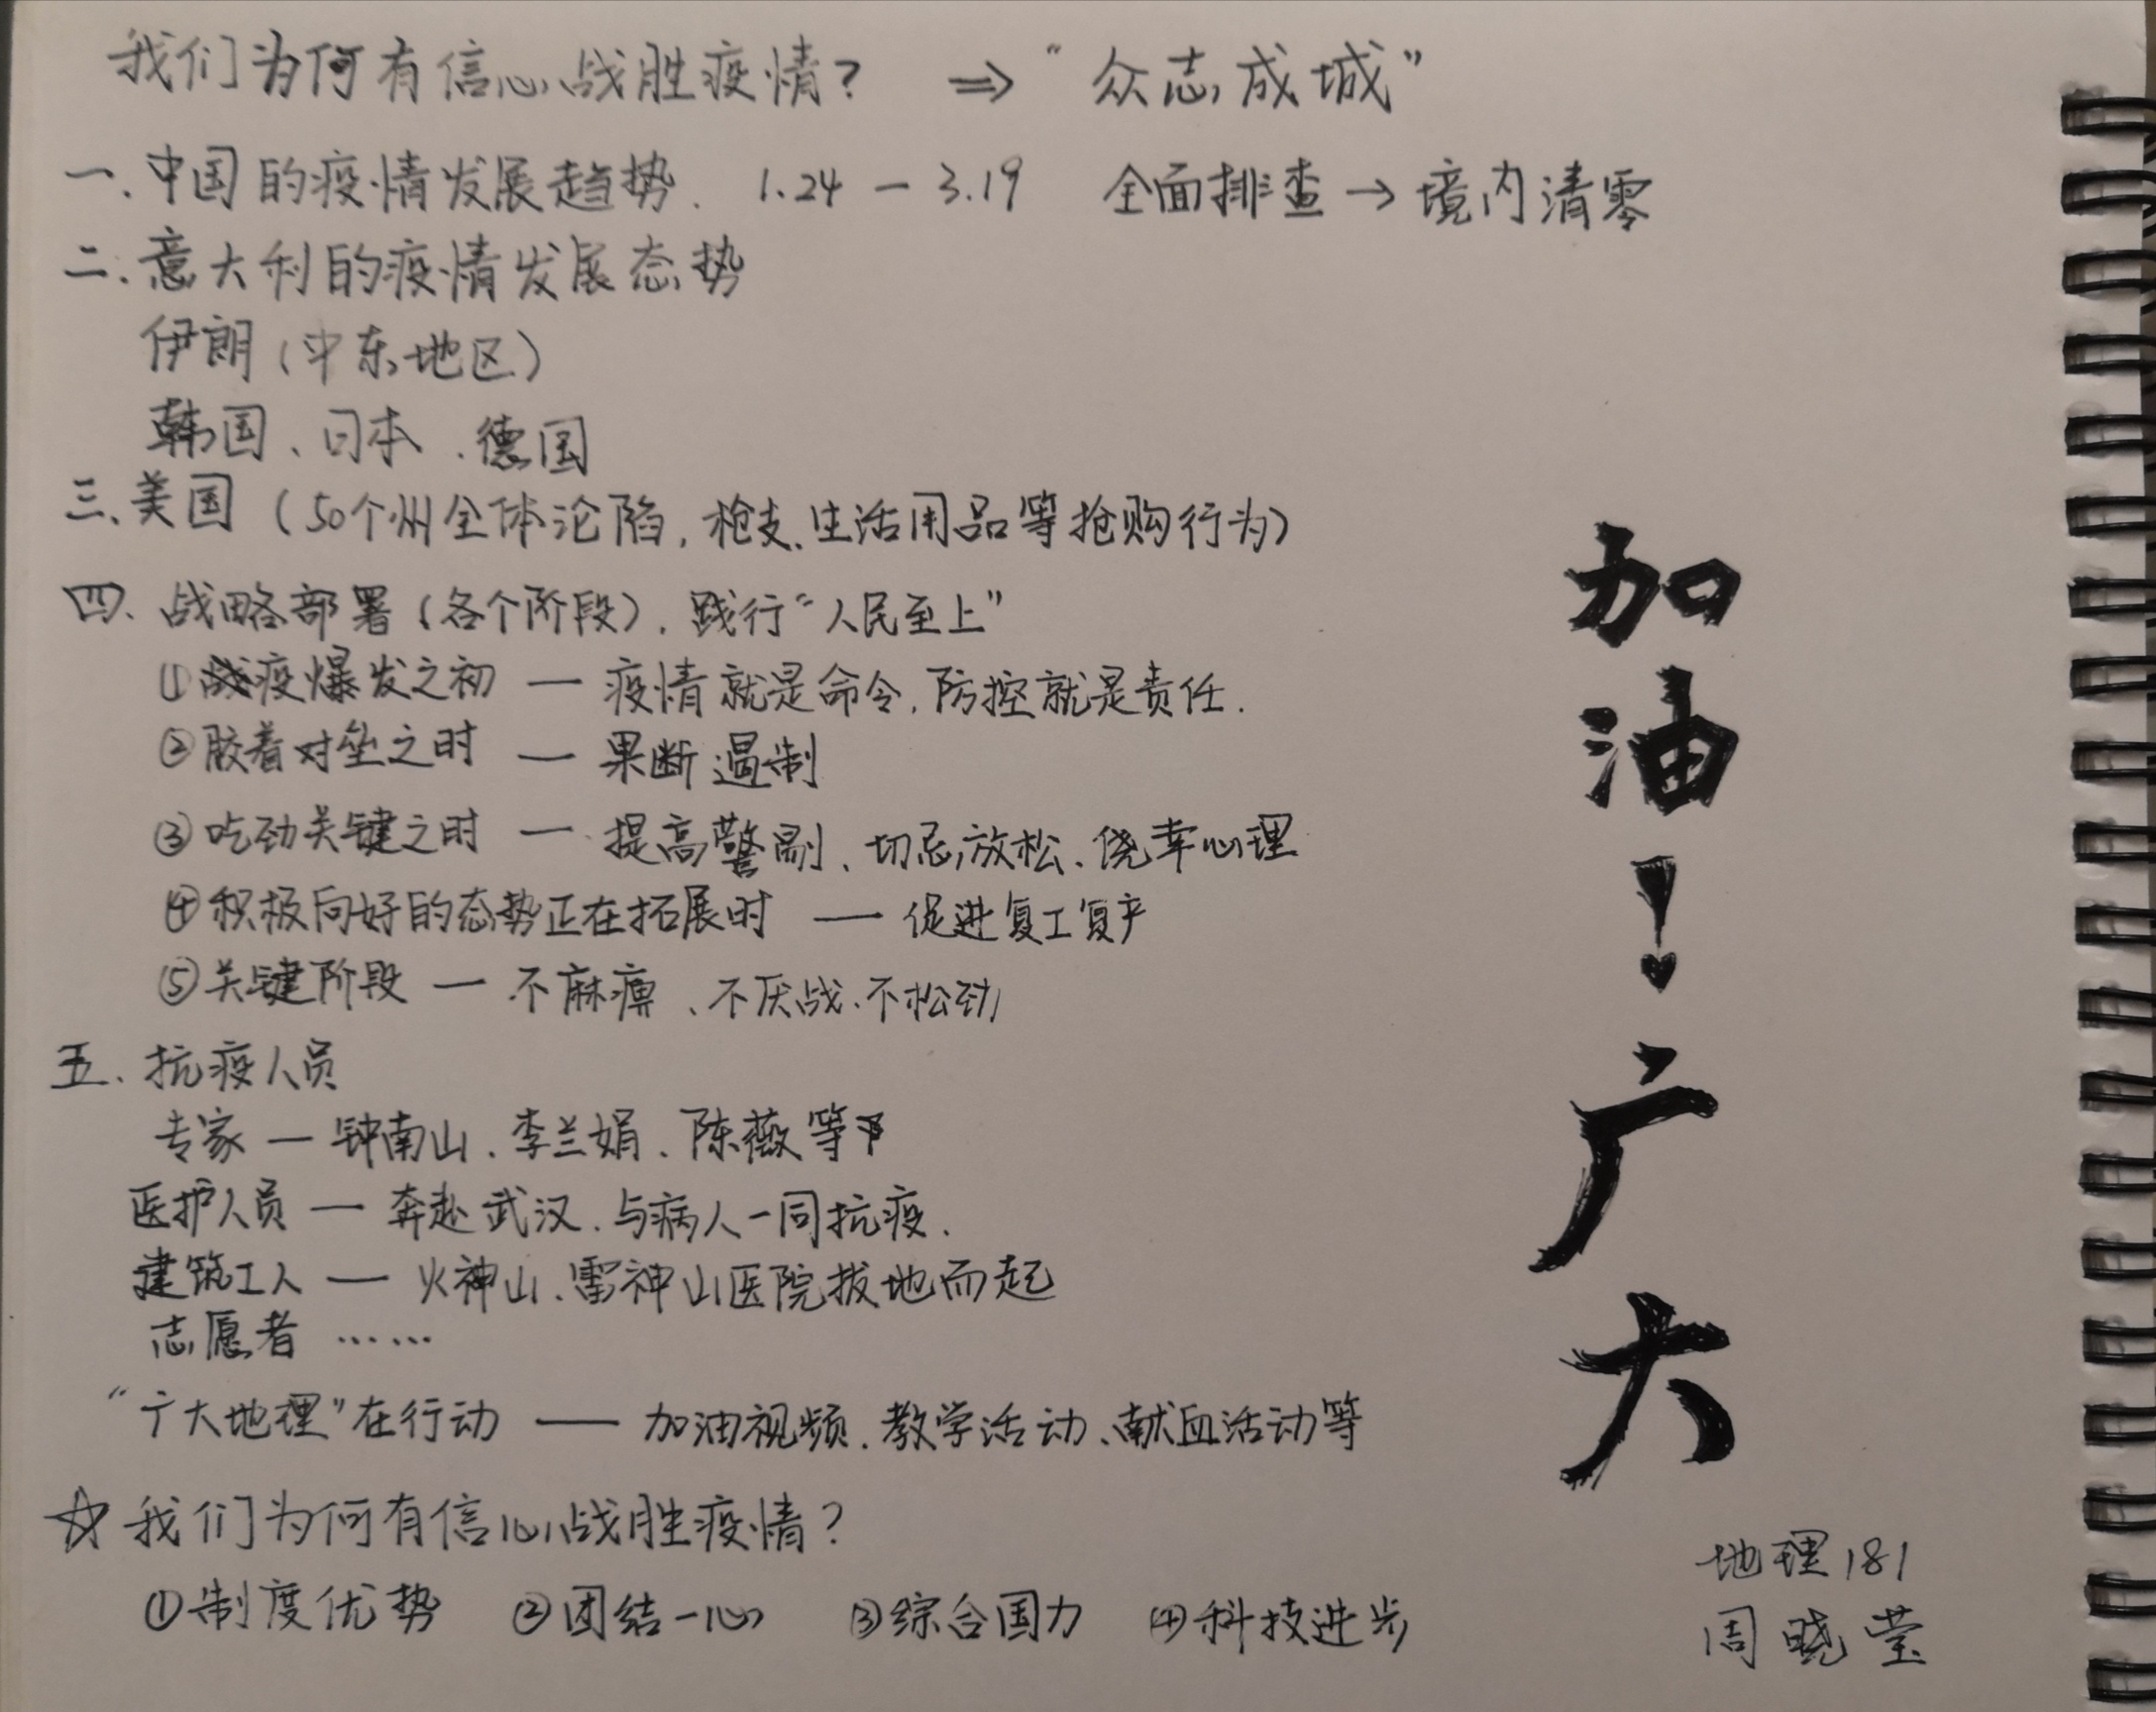 我们为何有信心战胜疫情? ⇒ “众志成城”
一.中国的疫情发展趋势. 1.24 — 3.19 全面排查→境内清零
二.意大利的疫情发展态势
伊朗(中东地区)
韩国、日本、德国
三、美国(50个州全体沦陷,枪支、生活用品等抢购行为)
四、战略部署(各个阶段),践行“人民至上”
①疫爆发之初 — 疫情就是命令,防控就是责任.
②胶着对垒之时 — 果断遏制
③吃劲关键之时 — 提高警剔、切忌放松、侥幸心理
④积极向好的态势正在拓展时 — 促进复工复产
⑤关键阶段 — 不麻痹、不厌战、不松劲
五、抗疫人员
专家 — 钟南山、李兰娟、陈薇等
医护人员 — 奔赴武汉、与病人一同抗疫.
建筑工人 — 火神山、雷神山医院拔地而起
志愿者 ……
“广大地理”在行动 — 加油视频、教学活动、献血活动等
☆我们为何有信心战胜疫情?
①制度优势 ②团结一心 ③综合国力 ④科技进步
加油!广大
地理181
周晓莹